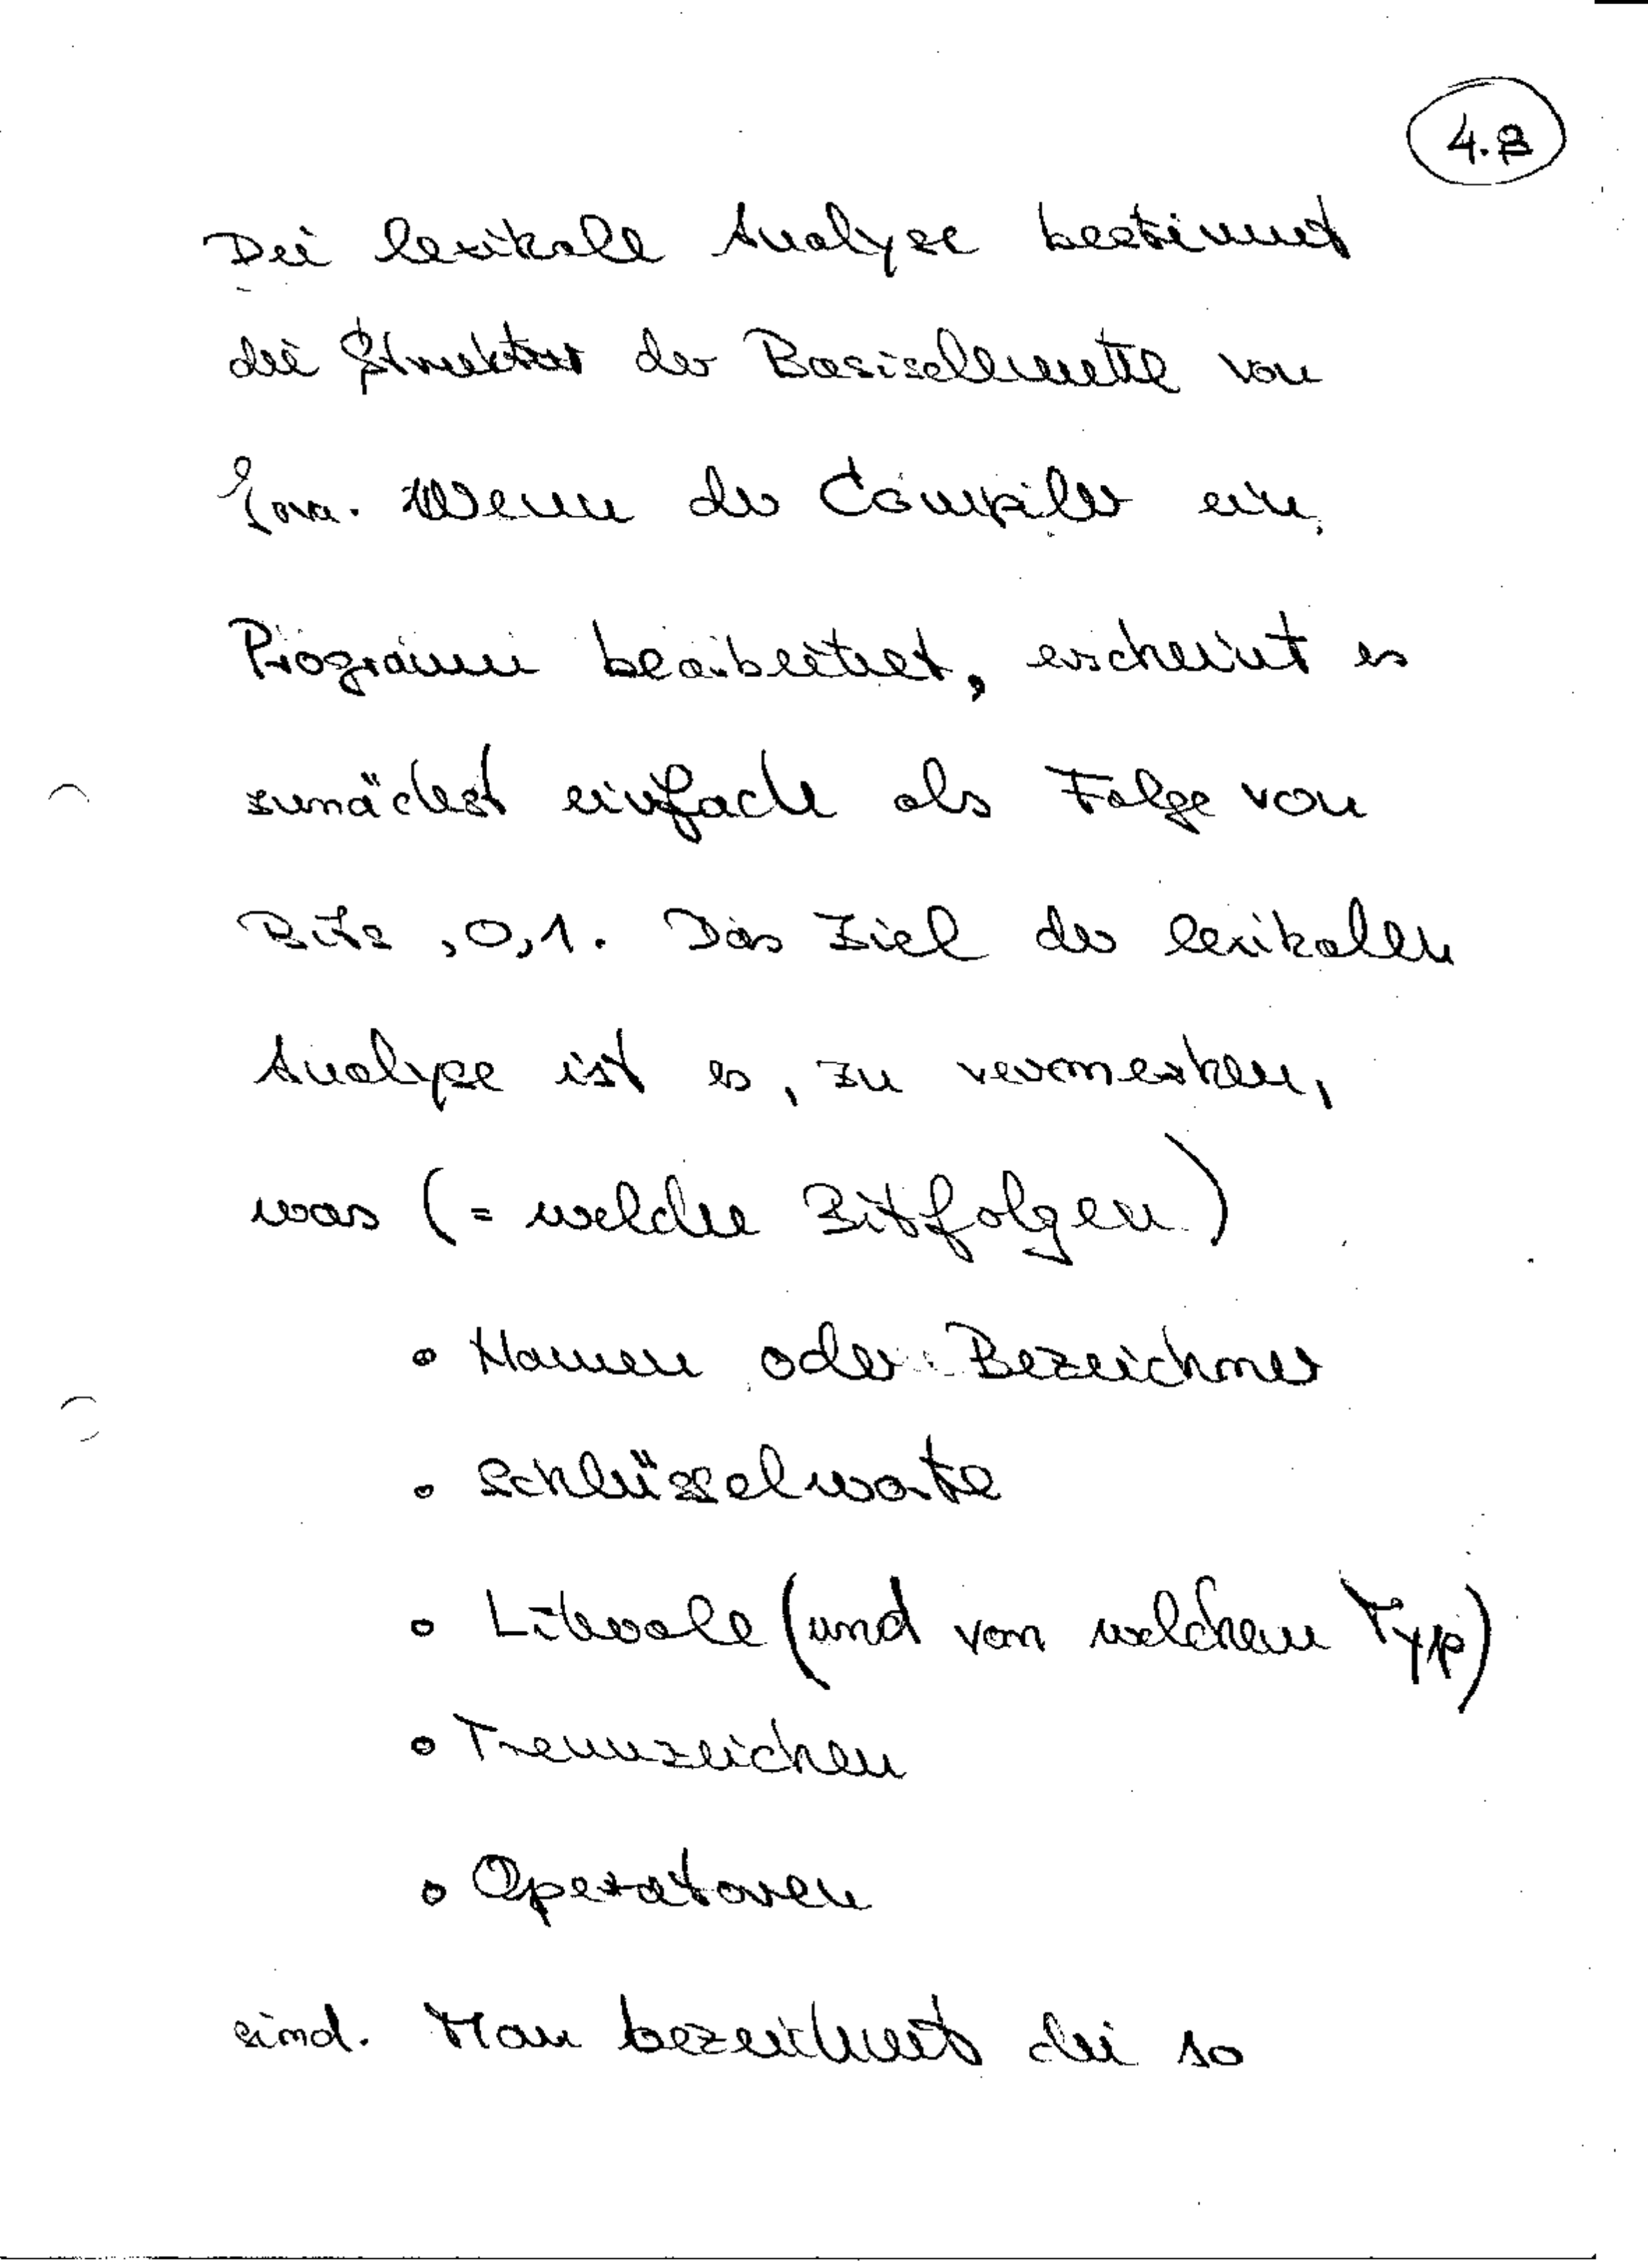 4.8
Die lexikale Analyse bestimmt
die Struktur der Basiselemente von
Java. Wenn der Compiler ein
Programm bearbeitet, erscheint es
zunächst einfach als Folge von
Bits, 0, 1. Das Ziel der lexikalen
Analyse ist es, zu vermerken,
was (= welche Bitfolgen)
• Namen oder Bezeichner
• Schlüsselworte
• Literale (und von welchem Typ)
• Trennzeichen
• Operatoren
sind. Man bezeichnet die so